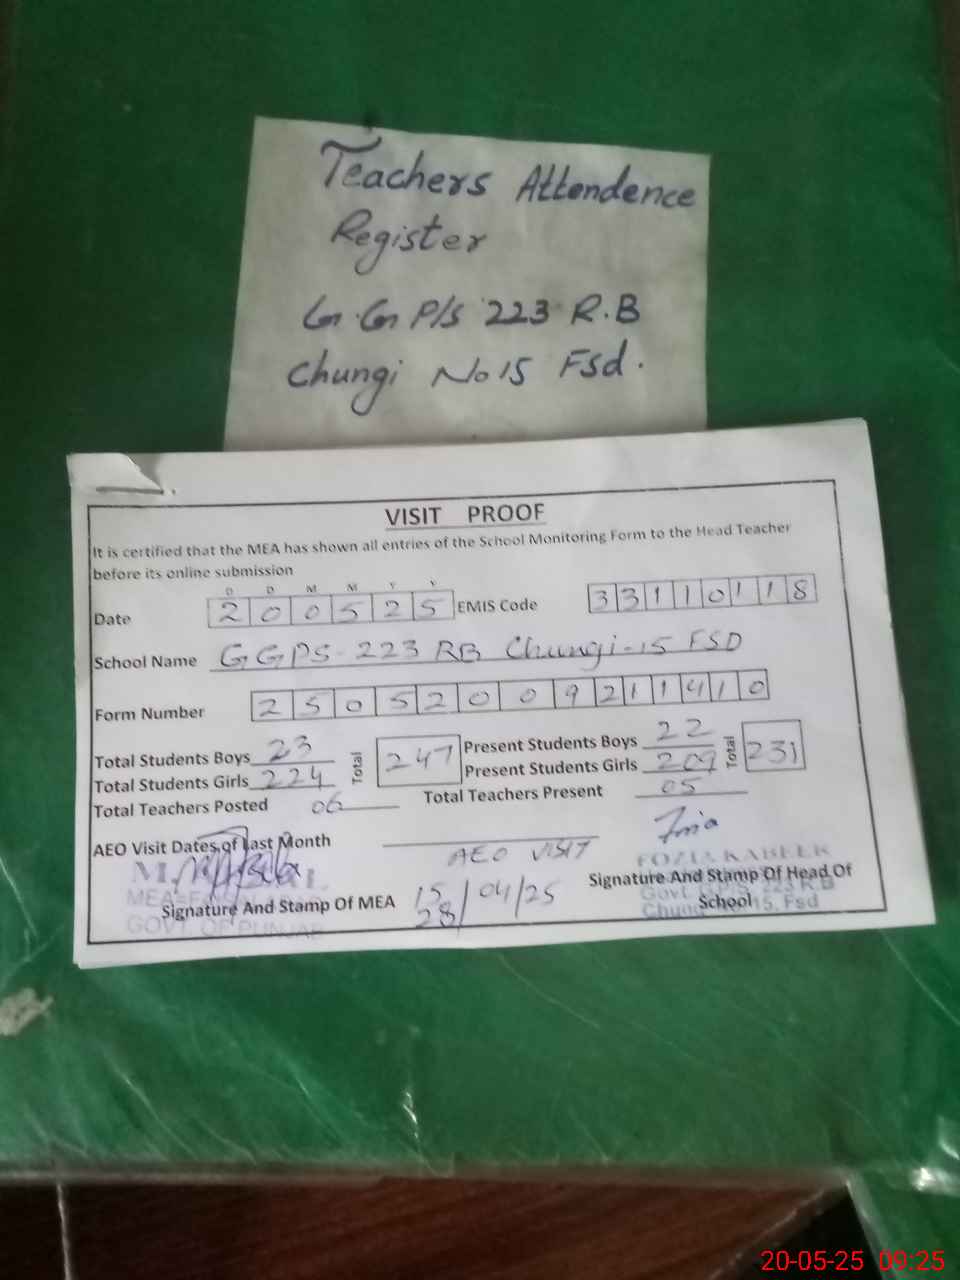 Teachers Attendence
Register
G.G P/S 223 R.B
Chungi No 15 Fsd.
VISIT PROOF
It is certified that the MEA has shown all entries of the School Monitoring Form to the Head Teacher
before its online submission
D D M M Y Y
Date 2 0 0 5 2 5 EMIS Code 3 3 1 1 0 1 1 8
School Name GGPS-223 RB Chungi-15 FSD
Form Number 2 5 0 5 2 0 0 9 2 1 1 4 1 0
Total Students Boys 23 Total 247 Present Students Boys 22 Total 231
Total Students Girls 224 Present Students Girls 209
Total Teachers Posted 06 Total Teachers Present 05
AEO Visit Dates of Last Month
AEO VISIT
FOZIA KABEER
Signature And Stamp Of MEA 15/04/25 Signature And Stamp Of Head Of
28
School
MEA
GOVT. OF PUNJAB
Govt. G.P/S, 223 R.B
Chungi No 15, Fsd
20-05-25 09:25